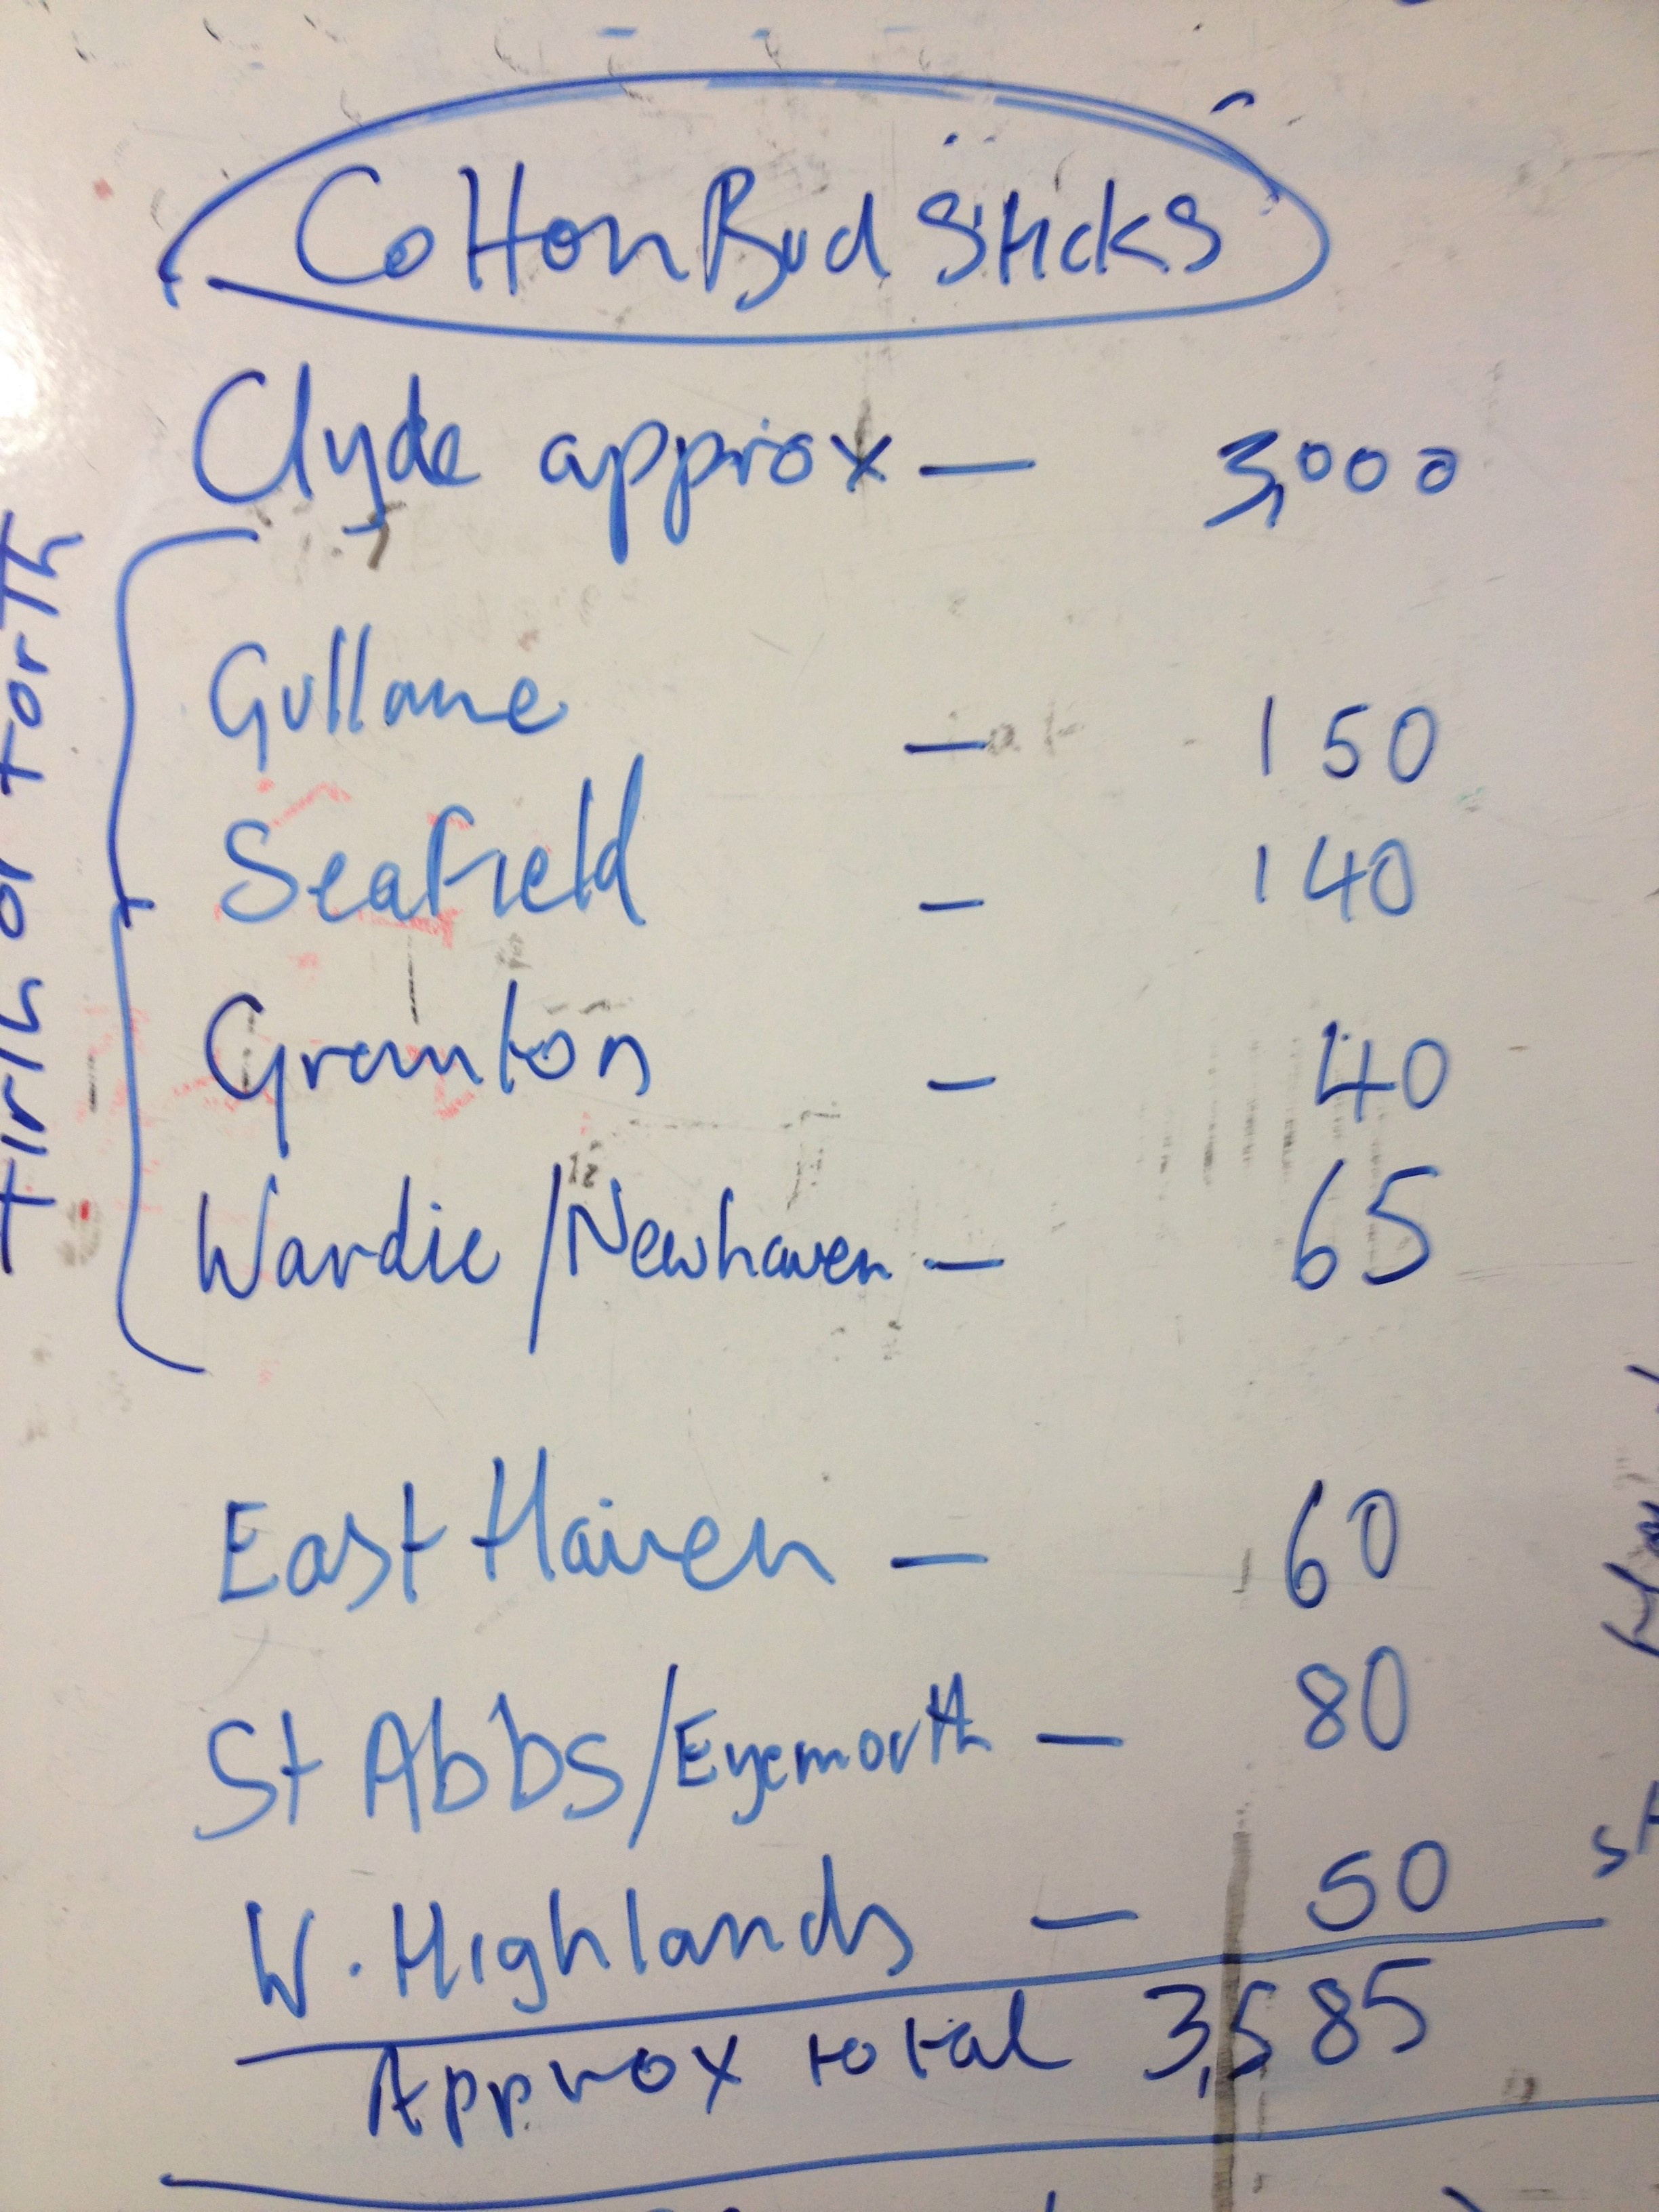 Cotton Bud Sticks
Clyde approx — 3,000
Firth of Forth
Gullane — 150
Seafield — 140
Granton — 40
Wardie/Newhaven — 65
East Haven — 60
St Abbs/Eyemouth — 80
W. Highlands — 50
Approx total 3,585